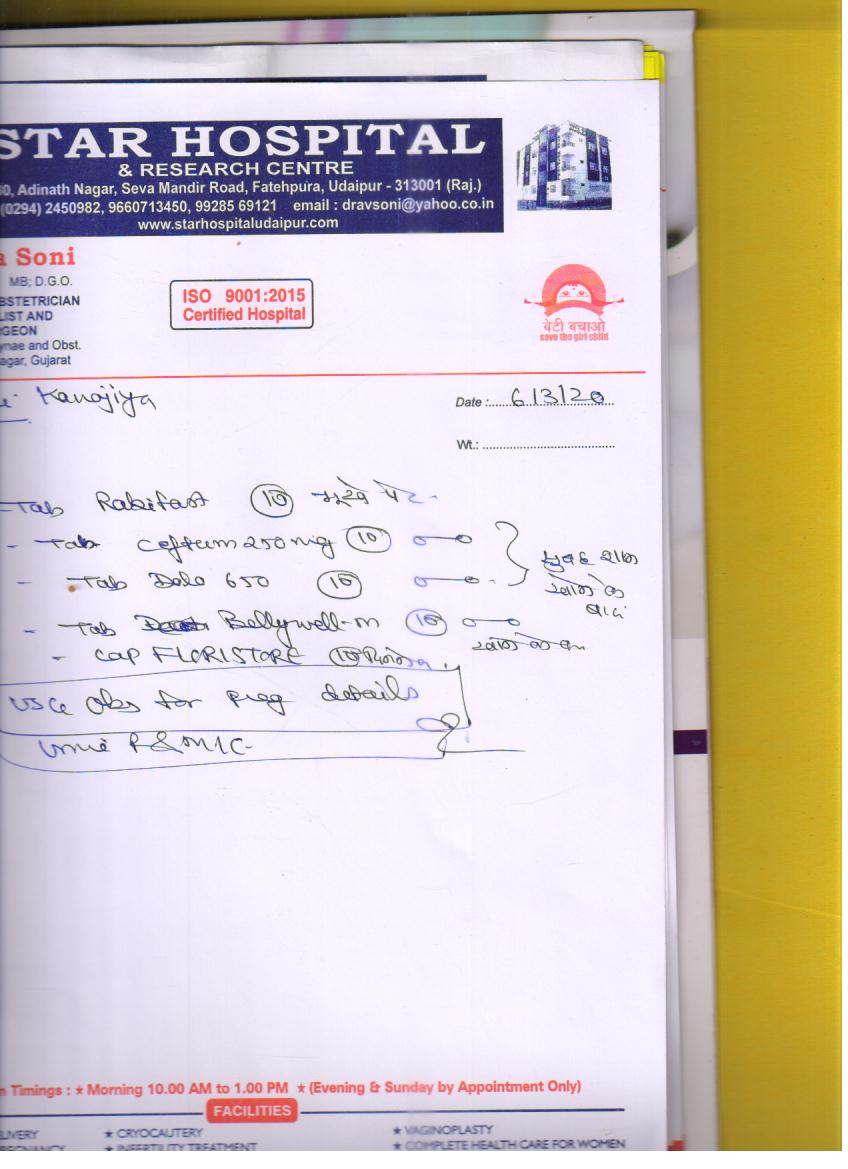 STAR HOSPITAL
& RESEARCH CENTRE
0, Adinath Nagar, Seva Mandir Road, Fatehpura, Udaipur - 313001 (Raj.)
(0294) 2450982, 9660713450, 99285 69121 email : dravsoni@yahoo.co.in
www.starhospitaludaipur.com
a Soni
MB; D.G.O.
BSTETRICIAN
LIST AND
GEON
ynae and Obst.
agar, Gujarat
ISO 9001:2015
Certified Hospital
बेटी बचाओ
save the girl child
Kanojiya
Date : 6/3/20
Wt.:
- Tab Rabifast 10 भूखे पेट
- Tab Ceftum 250 mg 10
- Tab Dolo 650 10
सुबह शाम
खाने के
बाद
- Tab Bellywell-m 10
- Cap FLORISTORE 10
USG Obs for preg details
Urine R & M / C
n Timings : ★ Morning 10.00 AM to 1.00 PM ★ (Evening & Sunday by Appointment Only)
FACILITIES
LIVERY ★ CRYOCAUTERY ★ VAGINOPLASTY
REGNANCY ★ INFERTILITY TREATMENT ★ COMPLETE HEALTH CARE FOR WOMEN